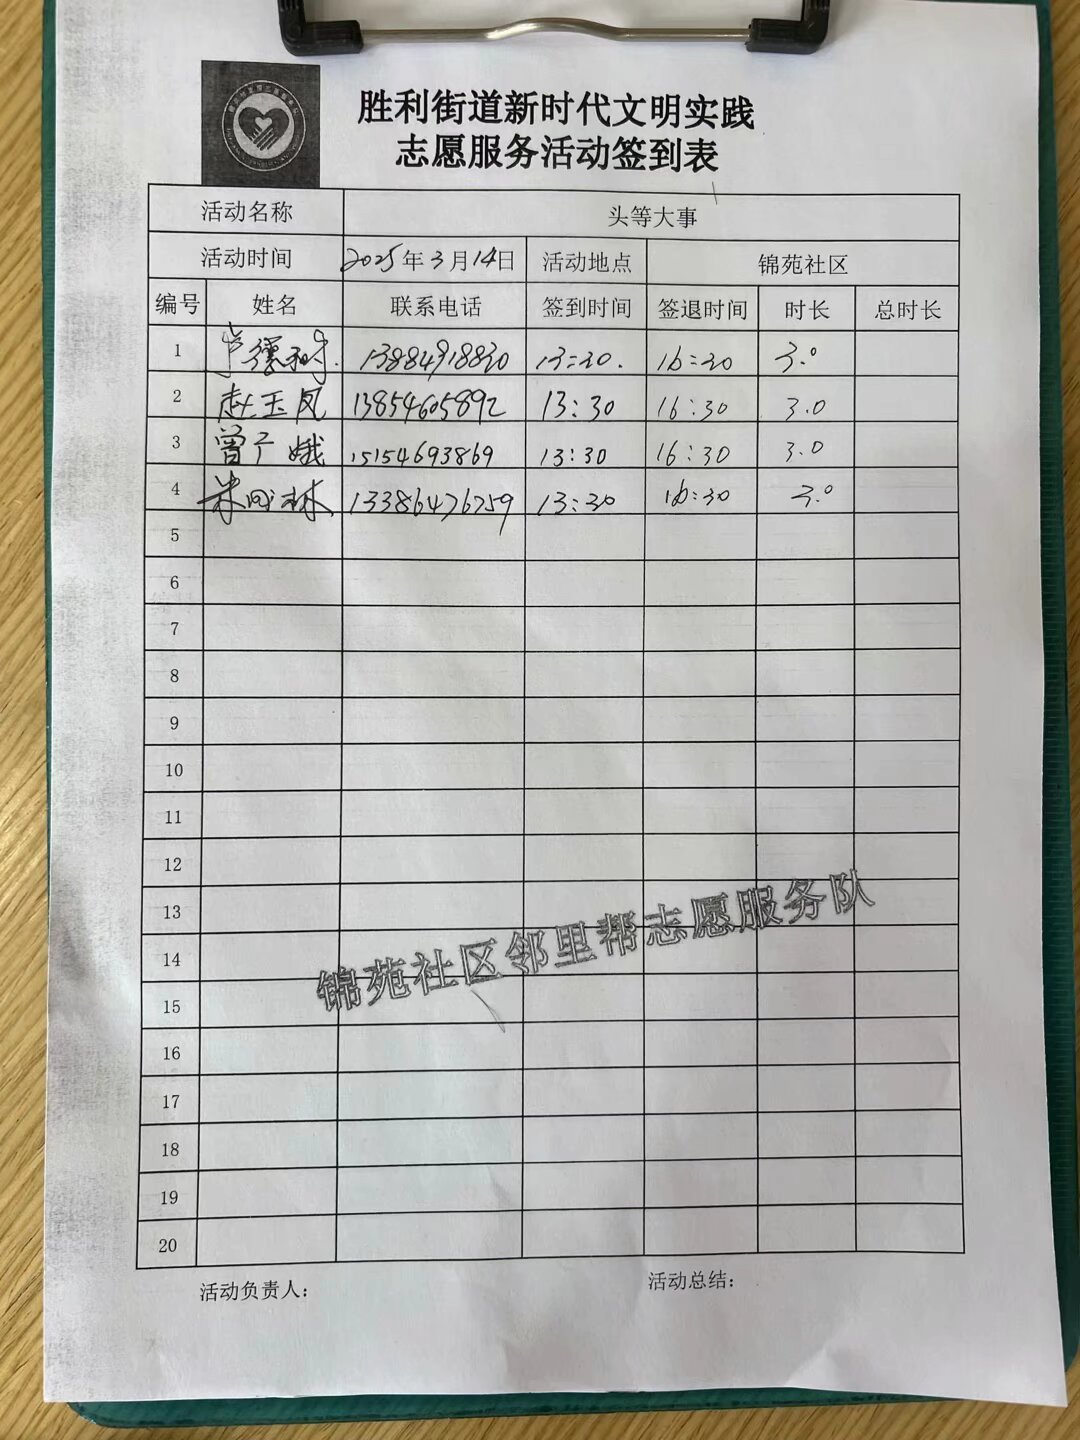 胜利街道新时代文明实践
志愿服务活动签到表
活动名称 头等大事
活动时间 2025年3月14日 活动地点 锦苑社区
编号 姓名 联系电话 签到时间 签退时间 时长 总时长
1 卢德树. 13884918830 13:30. 16:30 3.0
2 赵玉凤 13854605892 13:30 16:30 3.0
3 曾广娥 15154693869 13:30 16:30 3.0
4 林 13386476759 13:30 16:30 3.0
5
6
7
8
9
10
11
12
13
14
15
16
17
18
19
20
锦苑社区邻里帮志愿服务队
活动负责人: 活动总结: